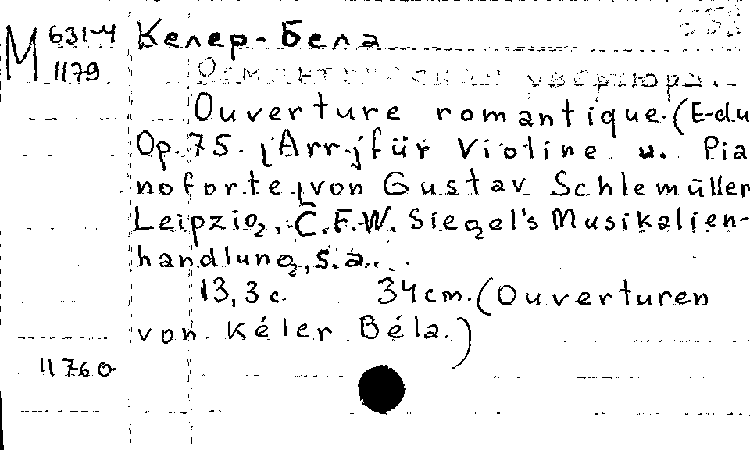 M 631-4 Келер-Бела
1179
Романтическая увертюра.
Ouverture romantique. (E-du
Op. 75. [Arr.] für Violine u. Pia
noforte [von Gustav Schlemüller
Leipzig, C.F.W. Siegel's Musikalien-
handlung, s.a.
13,3 c. 34 cm. (Ouverturen
von Kéler Béla.)
11760